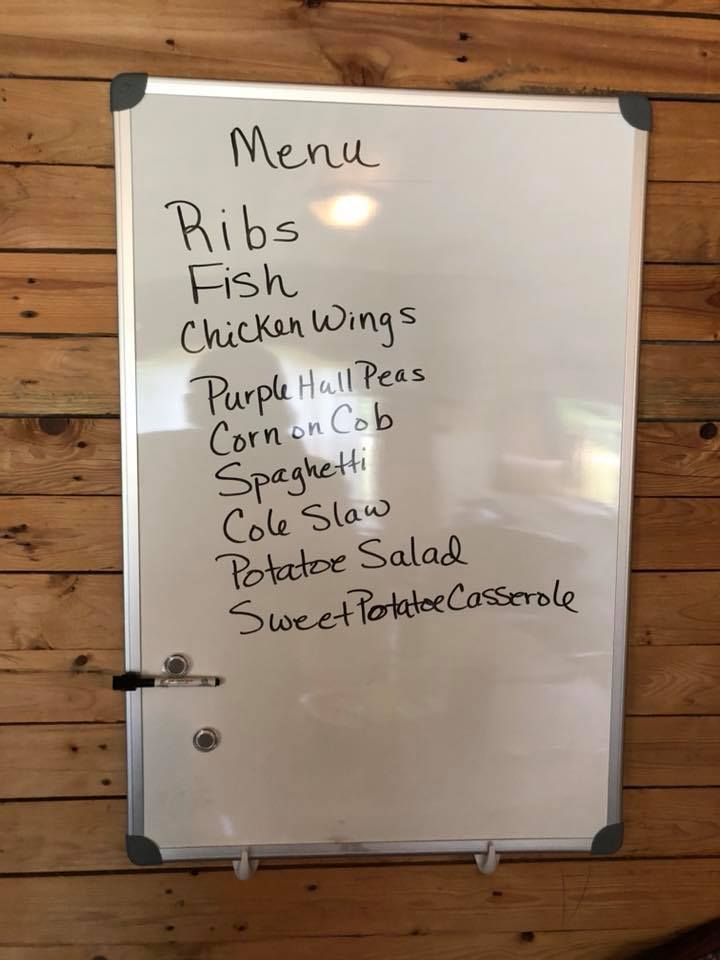 Menu
Ribs
Fish
Chicken Wings
Purple Hull Peas
Corn on Cob
Spaghetti
Cole Slaw
Potatoe Salad
Sweet Potatoe Casserole